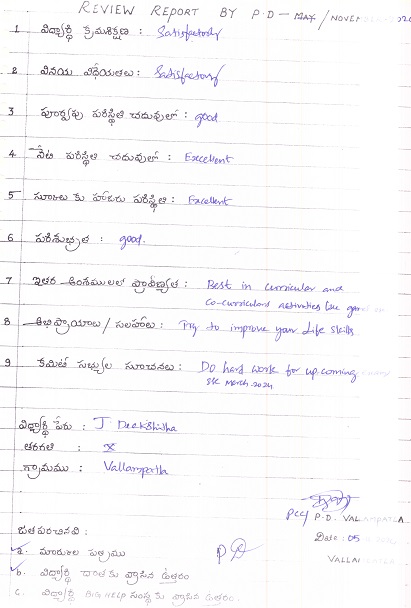 REVIEW REPORT BY P.D - MAY / NOVEM
1 విద్యార్థి క్రమశిక్షణ : Satisfactory
2 వినయ విధేయతలు : Satisfactory
3 పూర్వపు పరిస్థితి చదువులో : good
4 నేటి పరిస్థితి చదువులో : Excellent
5 స్కూలు కు హాజరు పరిస్థితి : Excellent
6 పరిశుభ్రత : good.
7 ఇతర అంశములలో ప్రావీణ్యత : Best in curricular and
co-curriculars activities like
8 అభిప్రాయాలు / సలహాలు : Try to improve your Life skills
9 కమిటీ సభ్యుల సూచనలు : Do hard work for upcoming
SSC March-2024
విద్యార్థి పేరు : J Deekshitha
తరగతి : X
గ్రామము : Vallampatla
P.D. VALLAMPATLA
Date : 05
జతపరచినవి :
a. మార్కుల పత్రము
b. విద్యార్థి దాతకు వ్రాసిన ఉత్తరం
c. విద్యార్థి BIG HELP సంస్థకు వ్రాసిన ఉత్తరం.